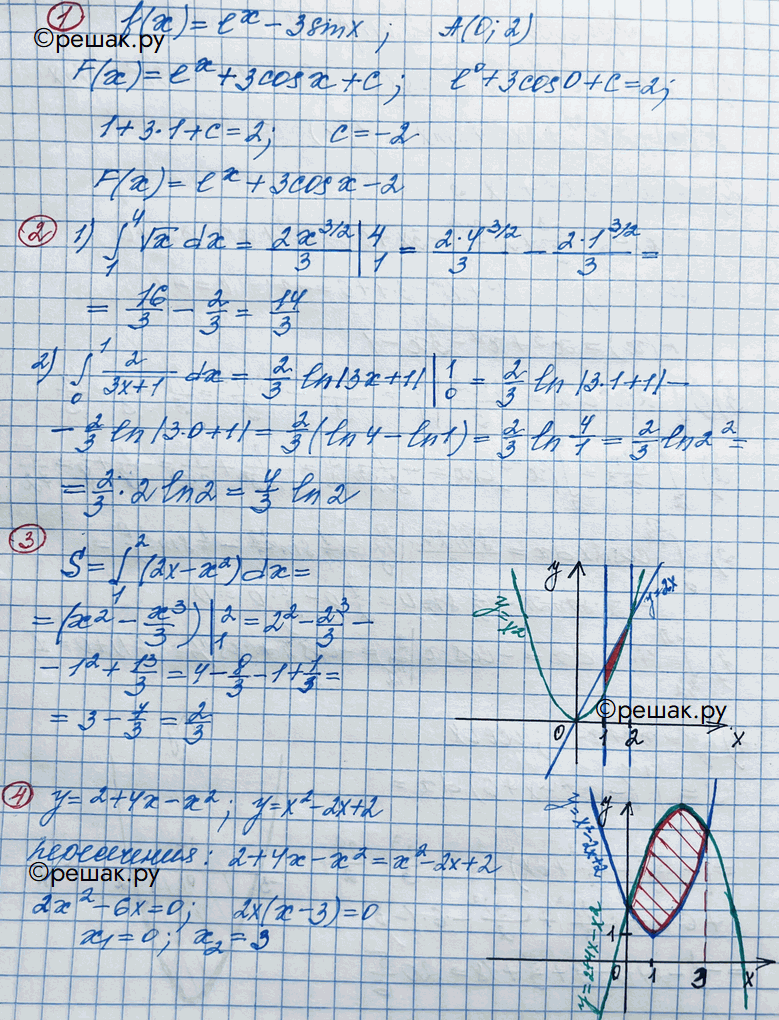 ① f(x) = eˣ − 3sinx ; A(0; 2)
©решак.ру
F(x) = eˣ + 3cosx + C ; e⁰ + 3cos0 + C = 2;
1 + 3·1 + C = 2; C = −2
F(x) = eˣ + 3cosx − 2
② 1) ∫₁⁴ √x dx = 2x^(3/2)/3 |₁⁴ = 2·4^(3/2)/3 − 2·1^(3/2)/3 =
= 16/3 − 2/3 = 14/3
2) ∫₀¹ 2/(3x+1) dx = 2/3 ln|3x+1| |₀¹ = 2/3 ln|3·1+1| −
− 2/3 ln|3·0+1| = 2/3 (ln4 − ln1) = 2/3 ln 4/1 = 2/3 ln2² =
= 2/3 · 2 ln2 = 4/3 ln2
③ S = ∫₁² (2x − x²) dx =
= (x² − x³/3) |₁² = 2² − 2³/3 −
− 1² + 1³/3 = 4 − 8/3 − 1 + 1/3 =
= 3 − 7/3 = 2/3
y = x²
y
y = 2x
©решак.ру
0 1 2 x
④ y = 2 + 4x − x² ; y = x² − 2x + 2
пересечения: 2 + 4x − x² = x² − 2x + 2
©решак.ру
2x² − 6x = 0; 2x(x − 3) = 0
x₁ = 0 ; x₂ = 3
y = x² − 2x + 2
y
1
y = 2 + 4x − x²
0 1 3 x